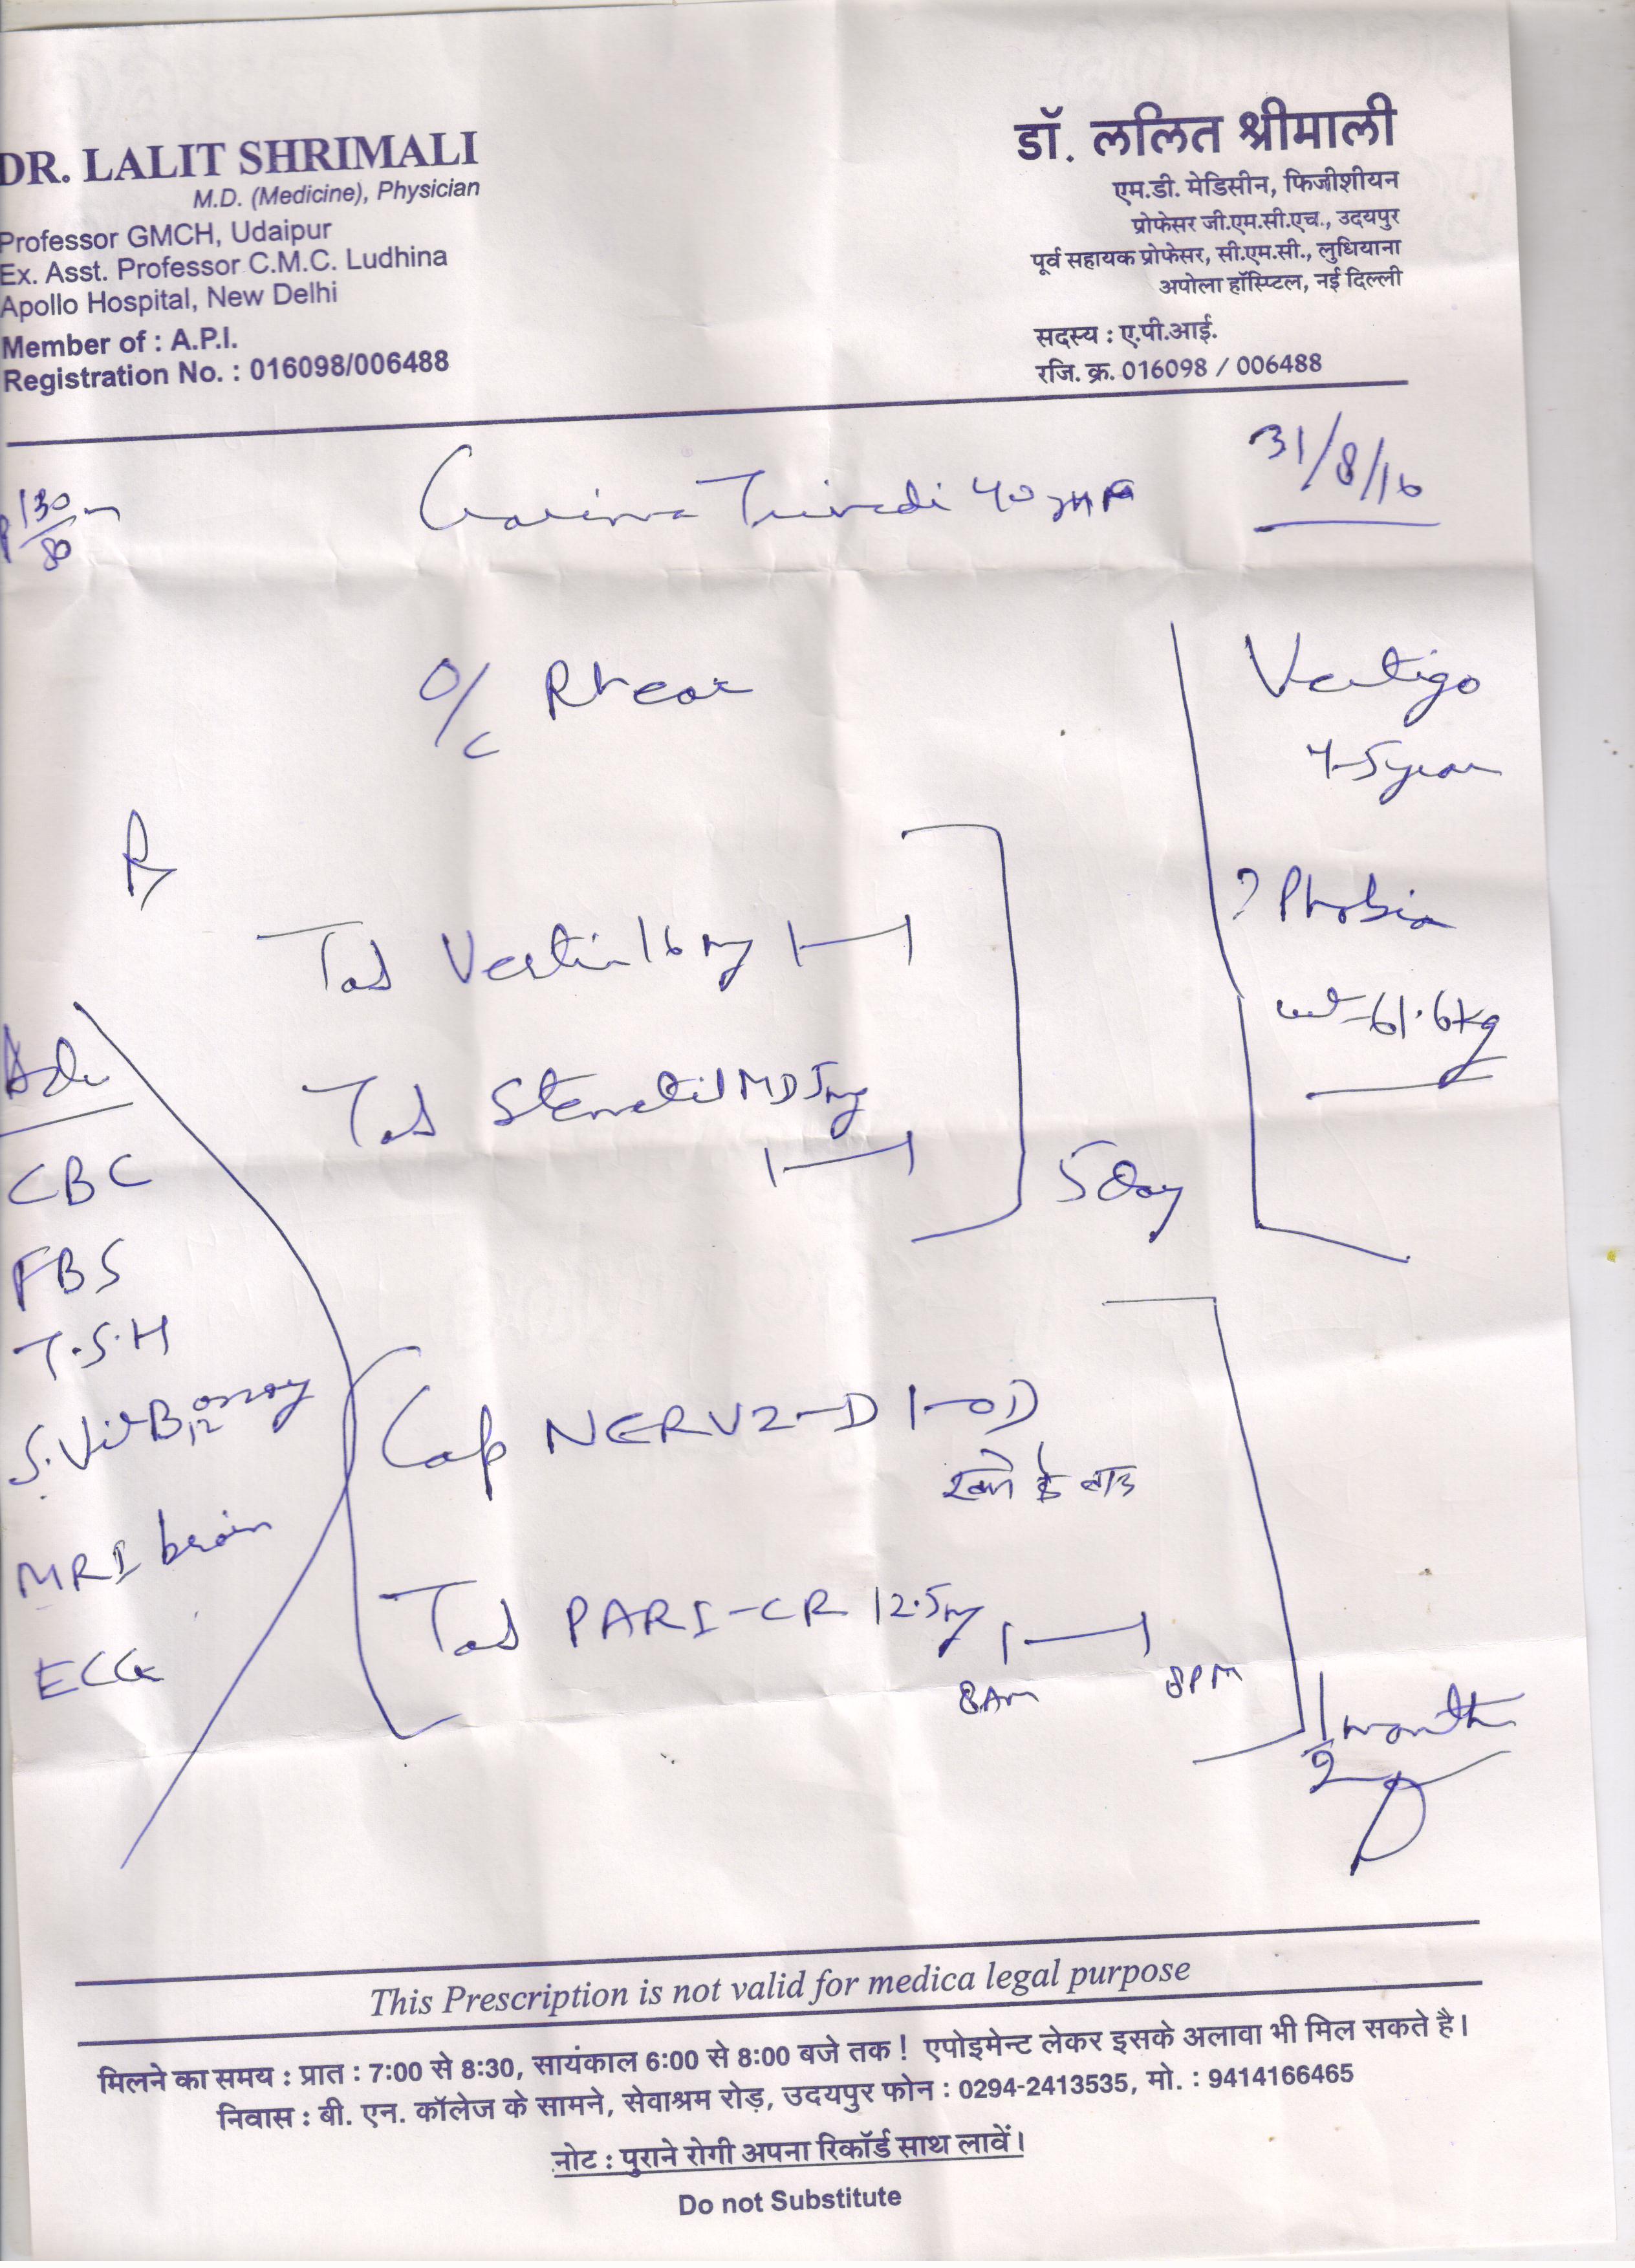 DR. LALIT SHRIMALI
M.D. (Medicine), Physician
Professor GMCH, Udaipur
Ex. Asst. Professor C.M.C. Ludhina
Apollo Hospital, New Delhi
Member of : A.P.I.
Registration No. : 016098/006488
डॉ. ललित श्रीमाली
एम.डी. मेडिसीन, फिजीशीयन
प्रोफेसर जी.एम.सी.एच., उदयपुर
पूर्व सहायक प्रोफेसर, सी.एम.सी., लुधियाना
अपोला हॉस्पिटल, नई दिल्ली
सदस्य : ए.पी.आई.
रजि. क्र. 016098 / 006488
31/8/16
130/80
Garima Trivedi 40
O/C Rt ear
Vertigo
4-5 year
? Phobia
wt = 61.6kg
Rx
Tab Vertin 16 mg 1—1
Tab Stemetil MD 5mg
1—1
5 day
Adv
CBC
FBS
T.S.H
S. Vit B12 assay
MRI brain
ECG
Cap NERVZ-D 1-OD
खाने के बाद
Tab PARI-CR 12.5mg 1—1
8AM 8PM
1/2 month
This Prescription is not valid for medica legal purpose
मिलने का समय : प्रात : 7:00 से 8:30, सायंकाल 6:00 से 8:00 बजे तक ! एपोइमेन्ट लेकर इसके अलावा भी मिल सकते है।
निवास : बी. एन. कॉलेज के सामने, सेवाश्रम रोड़, उदयपुर फोन : 0294-2413535, मो. : 9414166465
नोट : पुराने रोगी अपना रिकॉर्ड साथ लावें।
Do not Substitute